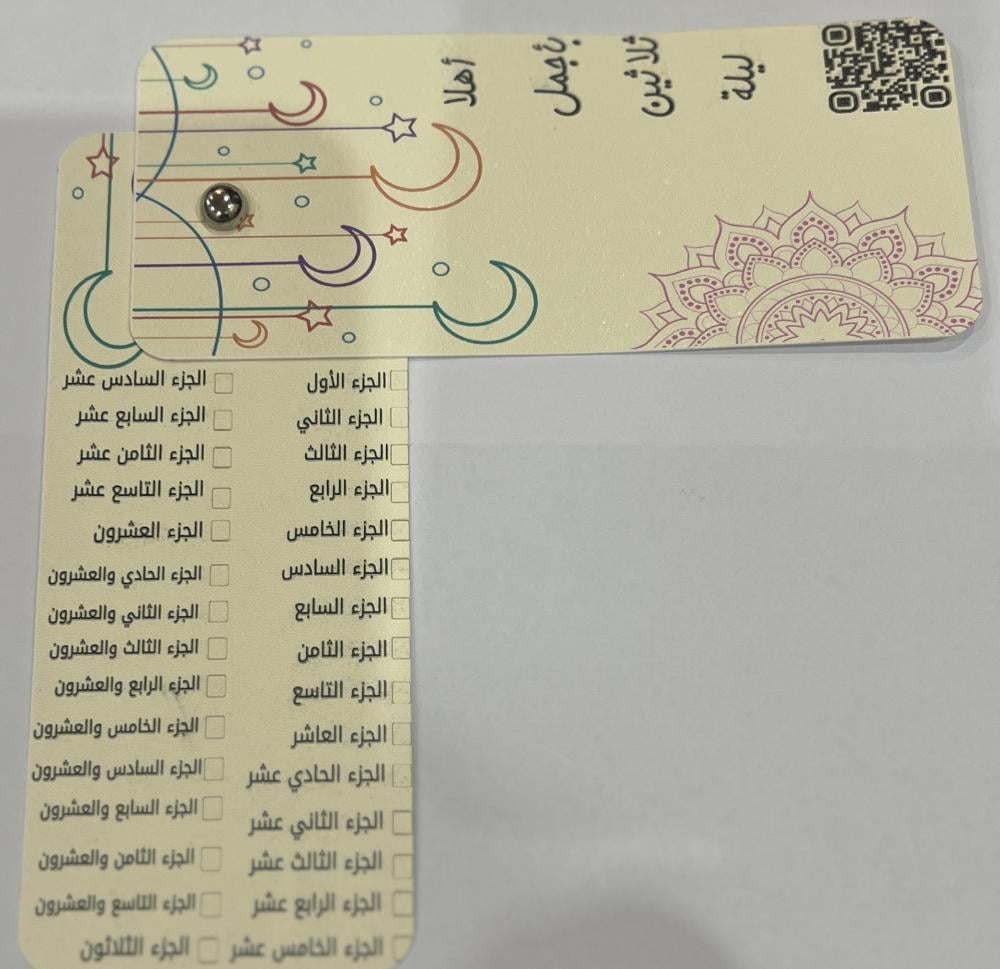 أهلا
بأجمل
ثلاثين
ليلة
الجزء الأول
الجزء الثاني
الجزء الثالث
الجزء الرابع
الجزء الخامس
الجزء السادس
الجزء السابع
الجزء الثامن
الجزء التاسع
الجزء العاشر
الجزء الحادي عشر
الجزء الثاني عشر
الجزء الثالث عشر
الجزء الرابع عشر
الجزء الخامس عشر
الجزء السادس عشر
الجزء السابع عشر
الجزء الثامن عشر
الجزء التاسع عشر
الجزء العشرون
الجزء الحادي والعشرون
الجزء الثاني والعشرون
الجزء الثالث والعشرون
الجزء الرابع والعشرون
الجزء الخامس والعشرون
الجزء السادس والعشرون
الجزء السابع والعشرون
الجزء الثامن والعشرون
الجزء التاسع والعشرون
الجزء الثلاثون